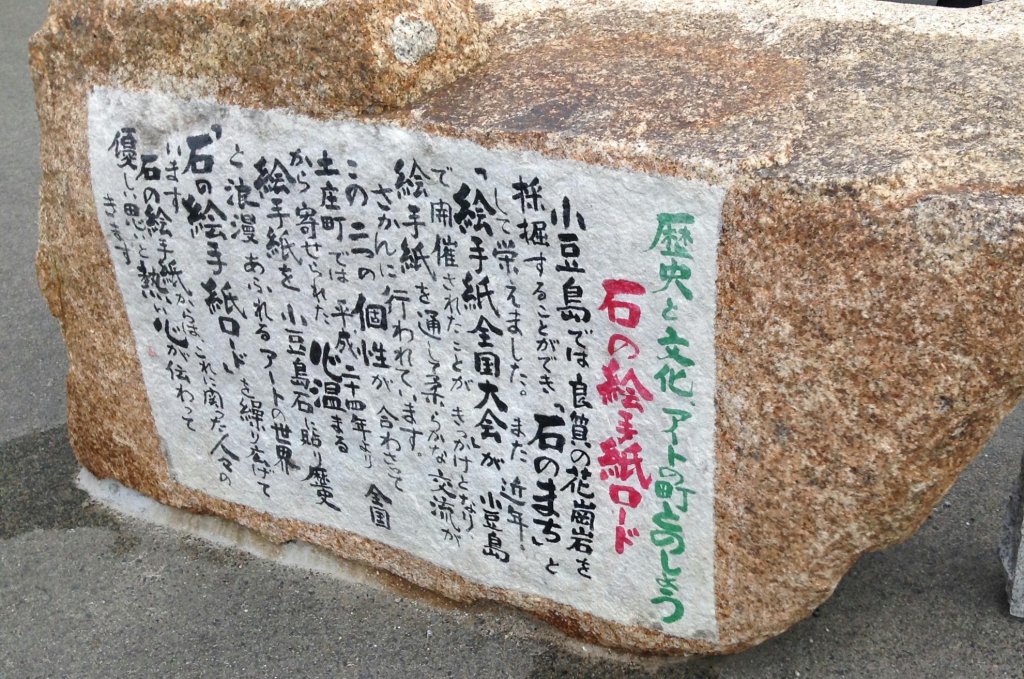 歴史と文化、アートの町とのしょう
石の絵手紙ロード
小豆島では良質の花崗岩を
採掘することができ、「石のまち」と
して栄えました。また、近年、
「絵手紙全国大会」が小豆島
で開催されたことがきっかけとなり
絵手紙を通して柔らかな交流が
さかんに行われています。
この二つの個性が合わさって
土庄町では平成二十四年より全国
から寄せられた心温まる
絵手紙を小豆島石に貼り歴史
と浪漫あふれるアートの世界
「石の絵手紙ロード」を繰り広げて
います。
石の絵手紙からは、これに関った人々の
優しい思いと熱い心が伝わって
きます。